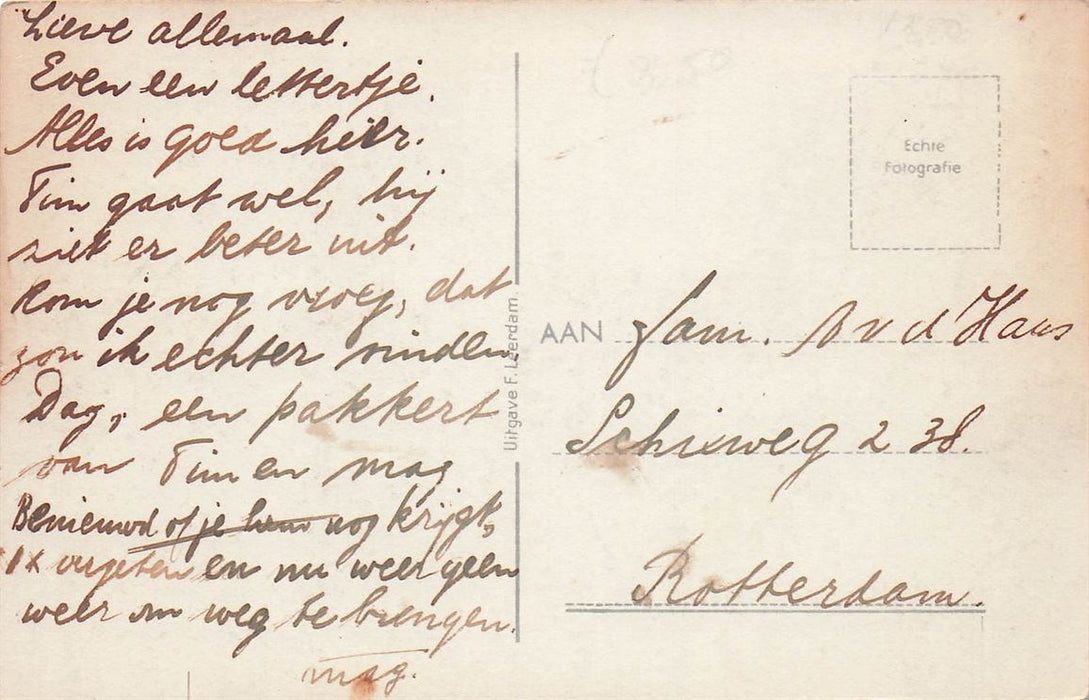 Lieve allemaal.
Even een lettertje.
Alles is goed hier.
Tim gaat wel, hij
ziet er beter uit.
Kom je nog vroeg, dat
zou ik echter vinden
Dag, een pakkert
van Tim en mag
Benieuwd of je hem nog krijgt,
1x vergeten en nu weer geen
weer om weg te brengen.
mag.
Uitgave F. Leerdam.
Echte
Fotografie
AAN Fam. A v d Haas
Schieweg 238.
Rotterdam.